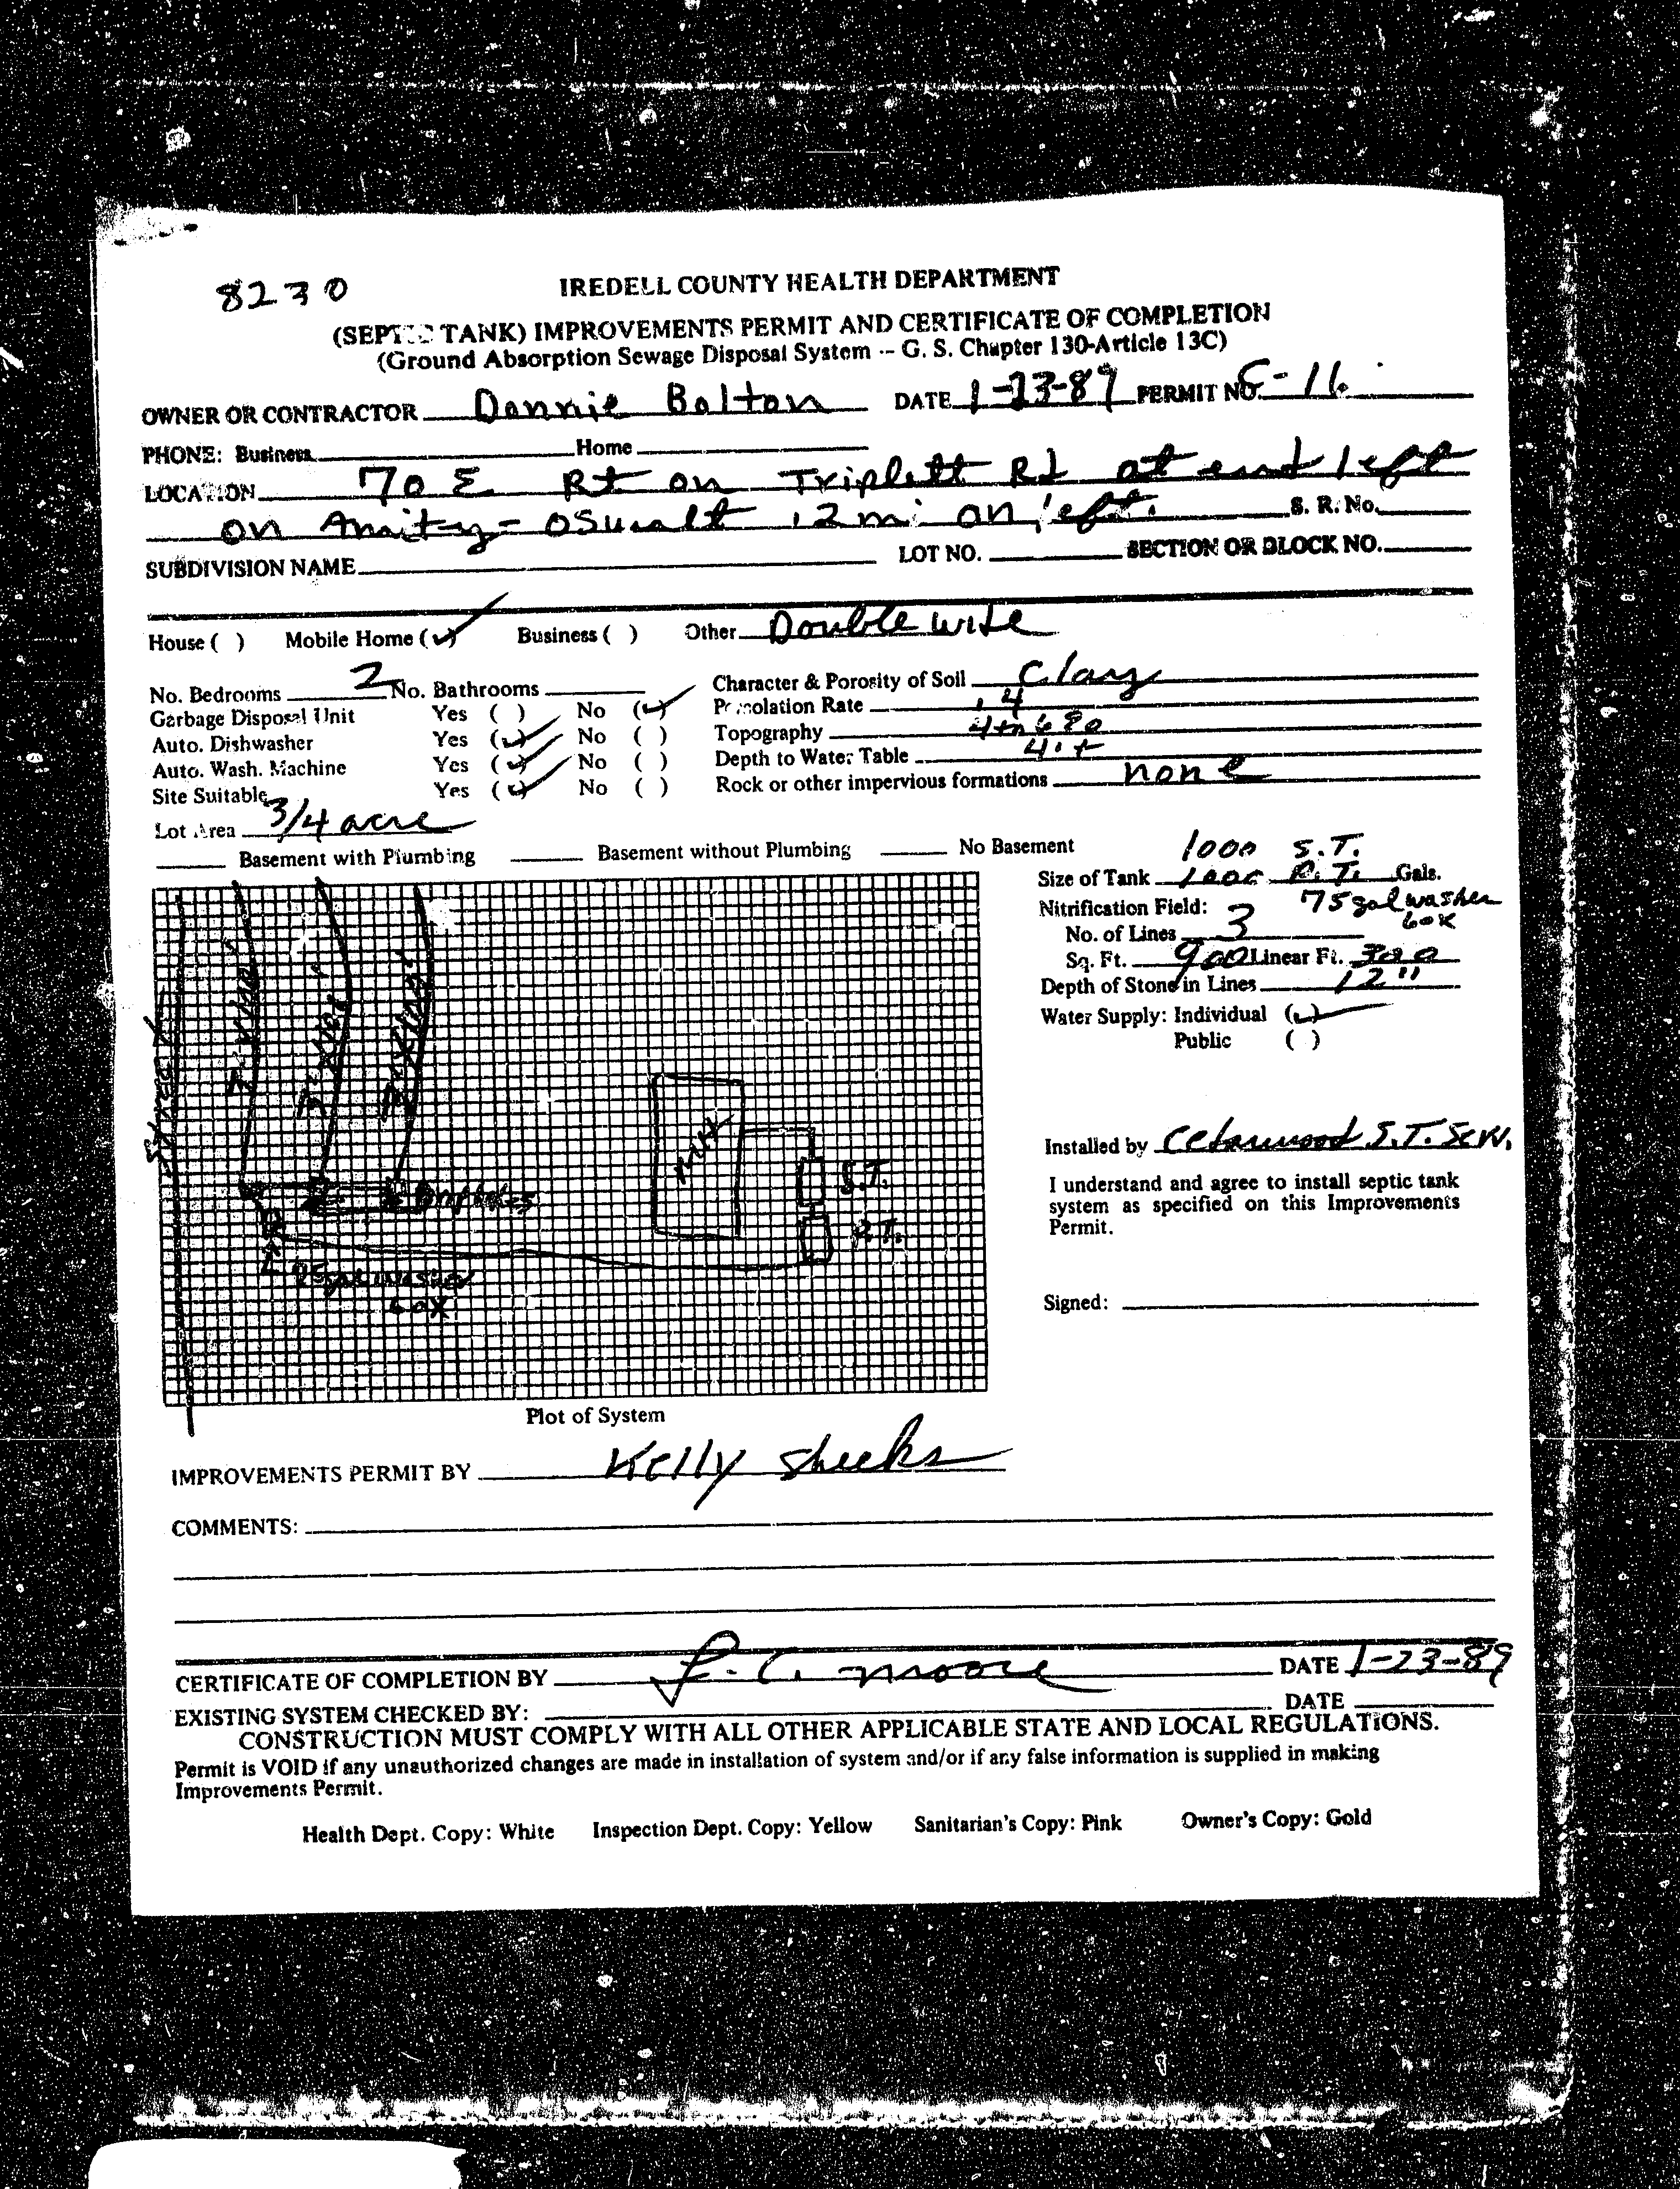 8230
IREDELL COUNTY HEALTH DEPARTMENT
(SEPTIC TANK) IMPROVEMENTS PERMIT AND CERTIFICATE OF COMPLETION
(Ground Absorption Sewage Disposal System -- G. S. Chapter 130-Article 13C)
OWNER OR CONTRACTOR Donnie Bolton DATE 1-23-89 PERMIT NO. C-11.
PHONE: Business Home
LOCATION 70 E Rt on Triplett Rd at end left
on Amity-Oswalt .2 mi on left. S. R. No.
SUBDIVISION NAME LOT NO. SECTION OR BLOCK NO.
House ( ) Mobile Home (✓) Business ( ) Other Double wide
No. Bedrooms 2 No. Bathrooms Character & Porosity of Soil Clay
Garbage Disposal Unit Yes ( ) No (✓) Percolation Rate .4
Auto. Dishwasher Yes (✓) No ( ) Topography 4 to 6 %
Auto. Wash. Machine Yes (✓) No ( ) Depth to Water Table 4'+
Site Suitable Yes (✓) No ( ) Rock or other impervious formations none
Lot Area 3/4 acre
Basement with Plumbing Basement without Plumbing No Basement
1000 S.T.
Size of Tank 1000 P.T. Gals.
Nitrification Field: 75 gal washer
box
No. of Lines 3
Sq. Ft. 900 Linear Ft. 300
Depth of Stone in Lines 12"
Water Supply: Individual (✓)
Public ( )
Street
MH
S.T.
P.T.
75 gal washer
box
Installed by Cedarwood S.T. Serv.
I understand and agree to install septic tank
system as specified on this Improvements
Permit.
Signed:
Plot of System
IMPROVEMENTS PERMIT BY Kelly Sheeks
COMMENTS:
CERTIFICATE OF COMPLETION BY Moore DATE 1-23-89
EXISTING SYSTEM CHECKED BY: DATE
CONSTRUCTION MUST COMPLY WITH ALL OTHER APPLICABLE STATE AND LOCAL REGULATIONS.
Permit is VOID if any unauthorized changes are made in installation of system and/or if any false information is supplied in making
Improvements Permit.
Health Dept. Copy: White Inspection Dept. Copy: Yellow Sanitarian's Copy: Pink Owner's Copy: Gold